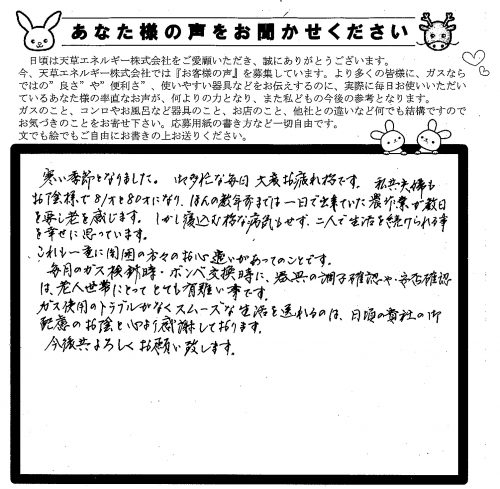 あなた様の声をお聞かせください
日頃は天草エネルギー株式会社をご愛顧いただき、誠にありがとうございます。
今、天草エネルギー株式会社では『お客様の声』を募集しています。より多くの皆様に、ガスなら
ではの”良さ”や”便利さ”、使いやすい器具などをお伝えするのに、実際に毎日お使いいただい
ているあなた様の率直なお声が、何よりの力となり、また私どもの今後の参考となります。
ガスのこと、コンロやお風呂など器具のこと、お店のこと、他社との違いなど何でも結構ですので
お気づきのことをお寄せ下さい。応募用紙の書き方など一切自由です。
文でも絵でもご自由にお書きの上お送りください。
寒い季節となりました。 御多忙な毎日 大変お疲れ様です。 私共夫婦も
お陰様で81才と80才になり、ほんの数年前までは一日で出来ていた農作業が数日
を要し老を感じます。 しかし寝込む様な病気もせず、二人で生活を続けられる事
を幸せに思っています。
これも一重に周囲の方々のお心遣いがあってのことです。
毎月のガス検針時・ボンベ交換時に、器具の調子確認や、安否確認
は、老人世帯にとってとても有難い事です。
ガス使用のトラブルがなくスムーズな生活を送れるのは、日頃の貴社の御
配慮のお陰と心より感謝しております。
今後共よろしくお願い致します。